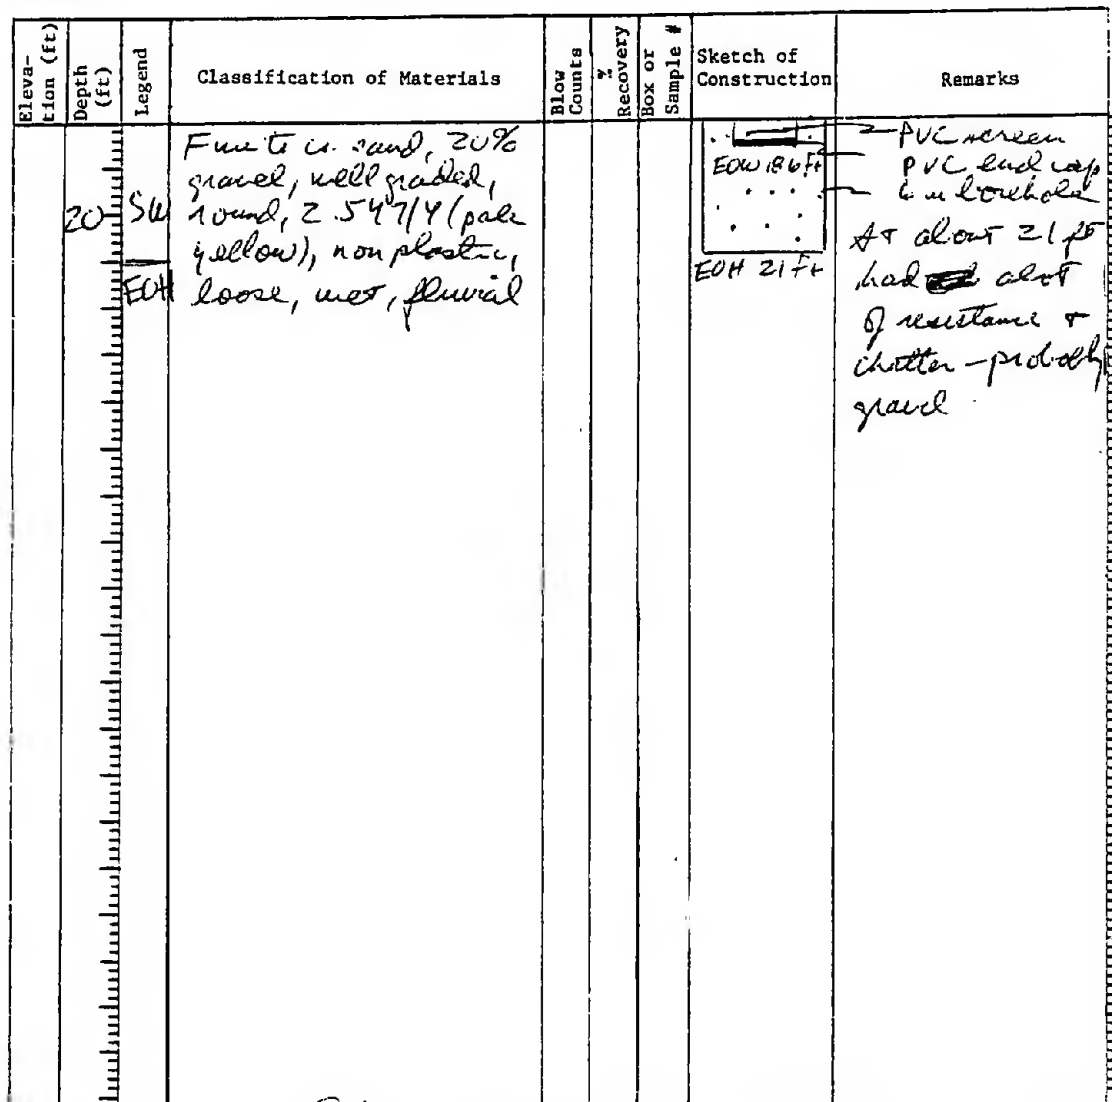 Eleva-
tion (ft)
Depth
(ft)
Legend
Classification of Materials
Blow
Counts
%
Recovery
Box or
Sample #
Sketch of
Construction
Remarks
20
SW
EOH
sand, 20%
gravel, well graded,
round, 2.5Y7/4 (pale
yellow), non plastic,
loose, wet, fluvial
EOW 18.6 ft
EOH 21 Ft
PVC screen
PVC end cap
borehole
At about 21 ft
had alot
of resistance +
chatter - probably
gravel